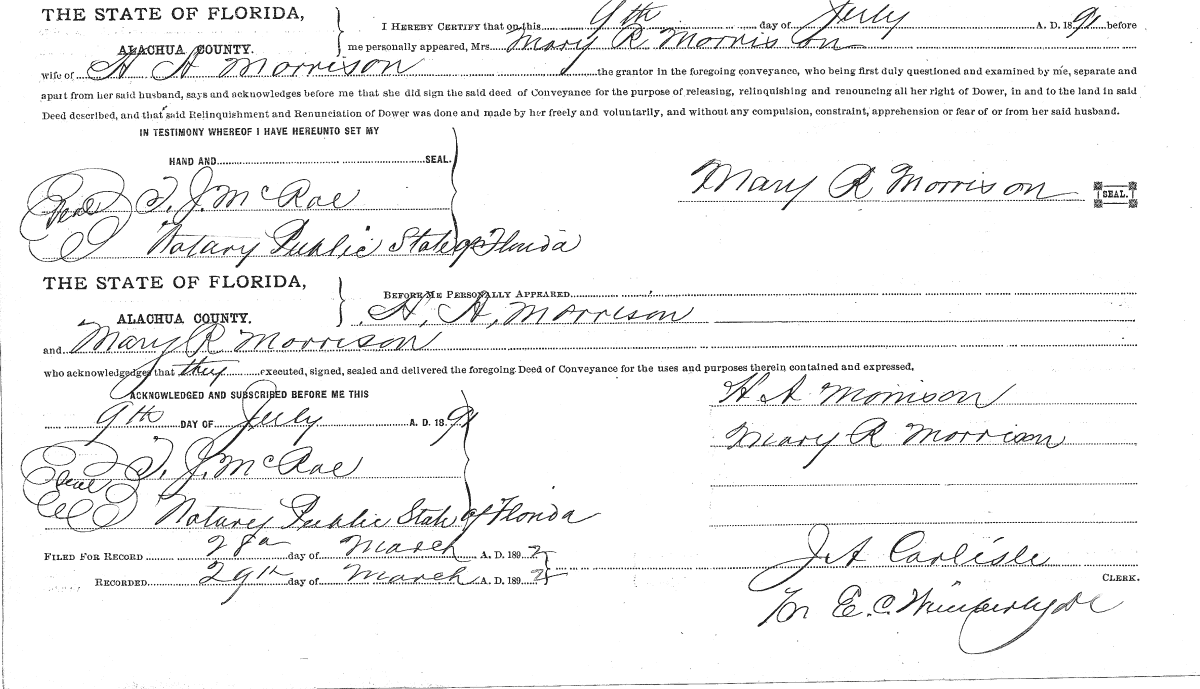 THE STATE OF FLORIDA,
I HEREBY CERTIFY that on this 9th day of July A. D. 18 91 before
ALACHUA COUNTY.
me personally appeared, Mrs. Mary R Morrison
wife of H A Morrison the grantor in the foregoing conveyance, who being first duly questioned and examined by me, separate and
apart from her said husband, says and acknowledges before me that she did sign the said deed of Conveyance for the purpose of releasing, relinquishing and renouncing all her right of Dower, in and to the land in said
Deed described, and that said Relinquishment and Renunciation of Dower was done and made by her freely and voluntarily, and without any compulsion, constraint, apprehension or fear of or from her said husband.
IN TESTIMONY WHEREOF I HAVE HEREUNTO SET MY
HAND AND SEAL.
Seal T. J. McRae
Mary R Morrison SEAL.
Notary Public State of Florida
THE STATE OF FLORIDA,
BEFORE ME PERSONALLY APPEARED
ALACHUA COUNTY.
H. A. Morrison
and Mary R Morrison
who acknowledged that they executed, signed, sealed and delivered the foregoing Deed of Conveyance for the uses and purposes therein contained and expressed,
ACKNOWLEDGED AND SUBSCRIBED BEFORE ME THIS
H. A Morrison
9th DAY OF July A. D. 18 91
Mary R Morrison
Seal T. J. McRae
Notary Public State of Florida
FILED FOR RECORD 28 day of March A. D. 189 2
J A Carlisle
RECORDED 29th day of March A. D. 189 2
CLERK.
E. C. Wimberly DC